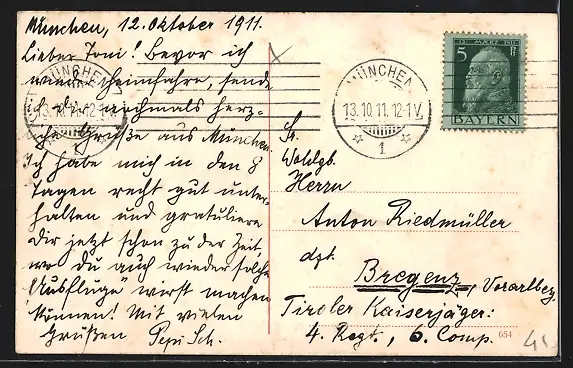 München, 12. Oktober 1911.
Lieber Toni! Bevor ich
wieder heimfahre, sende
ich dir nochmals herz-
Grüße aus München.
Ich habe mich in den 8
Tagen recht gut unter-
halten und gratuliere
dir jetzt schon zu der Zeit,
wo du auch wieder solche
"Ausflüge" wirst machen
können! Mit vielen
Grüßen Pepi Sch.
MÜNCHEN
13.10.11.12-1V.
1
MÜNCHEN
13.10.11.12-1V.
1
12. MÄRZ 1911
5
BAYERN
Sr.
Wohlgb.
Herrn
Anton Riedmüller
dzt.
Bregenz, Vorarlberg.
Tiroler Kaiserjäger:
4. Regt., 6. Comp.
654